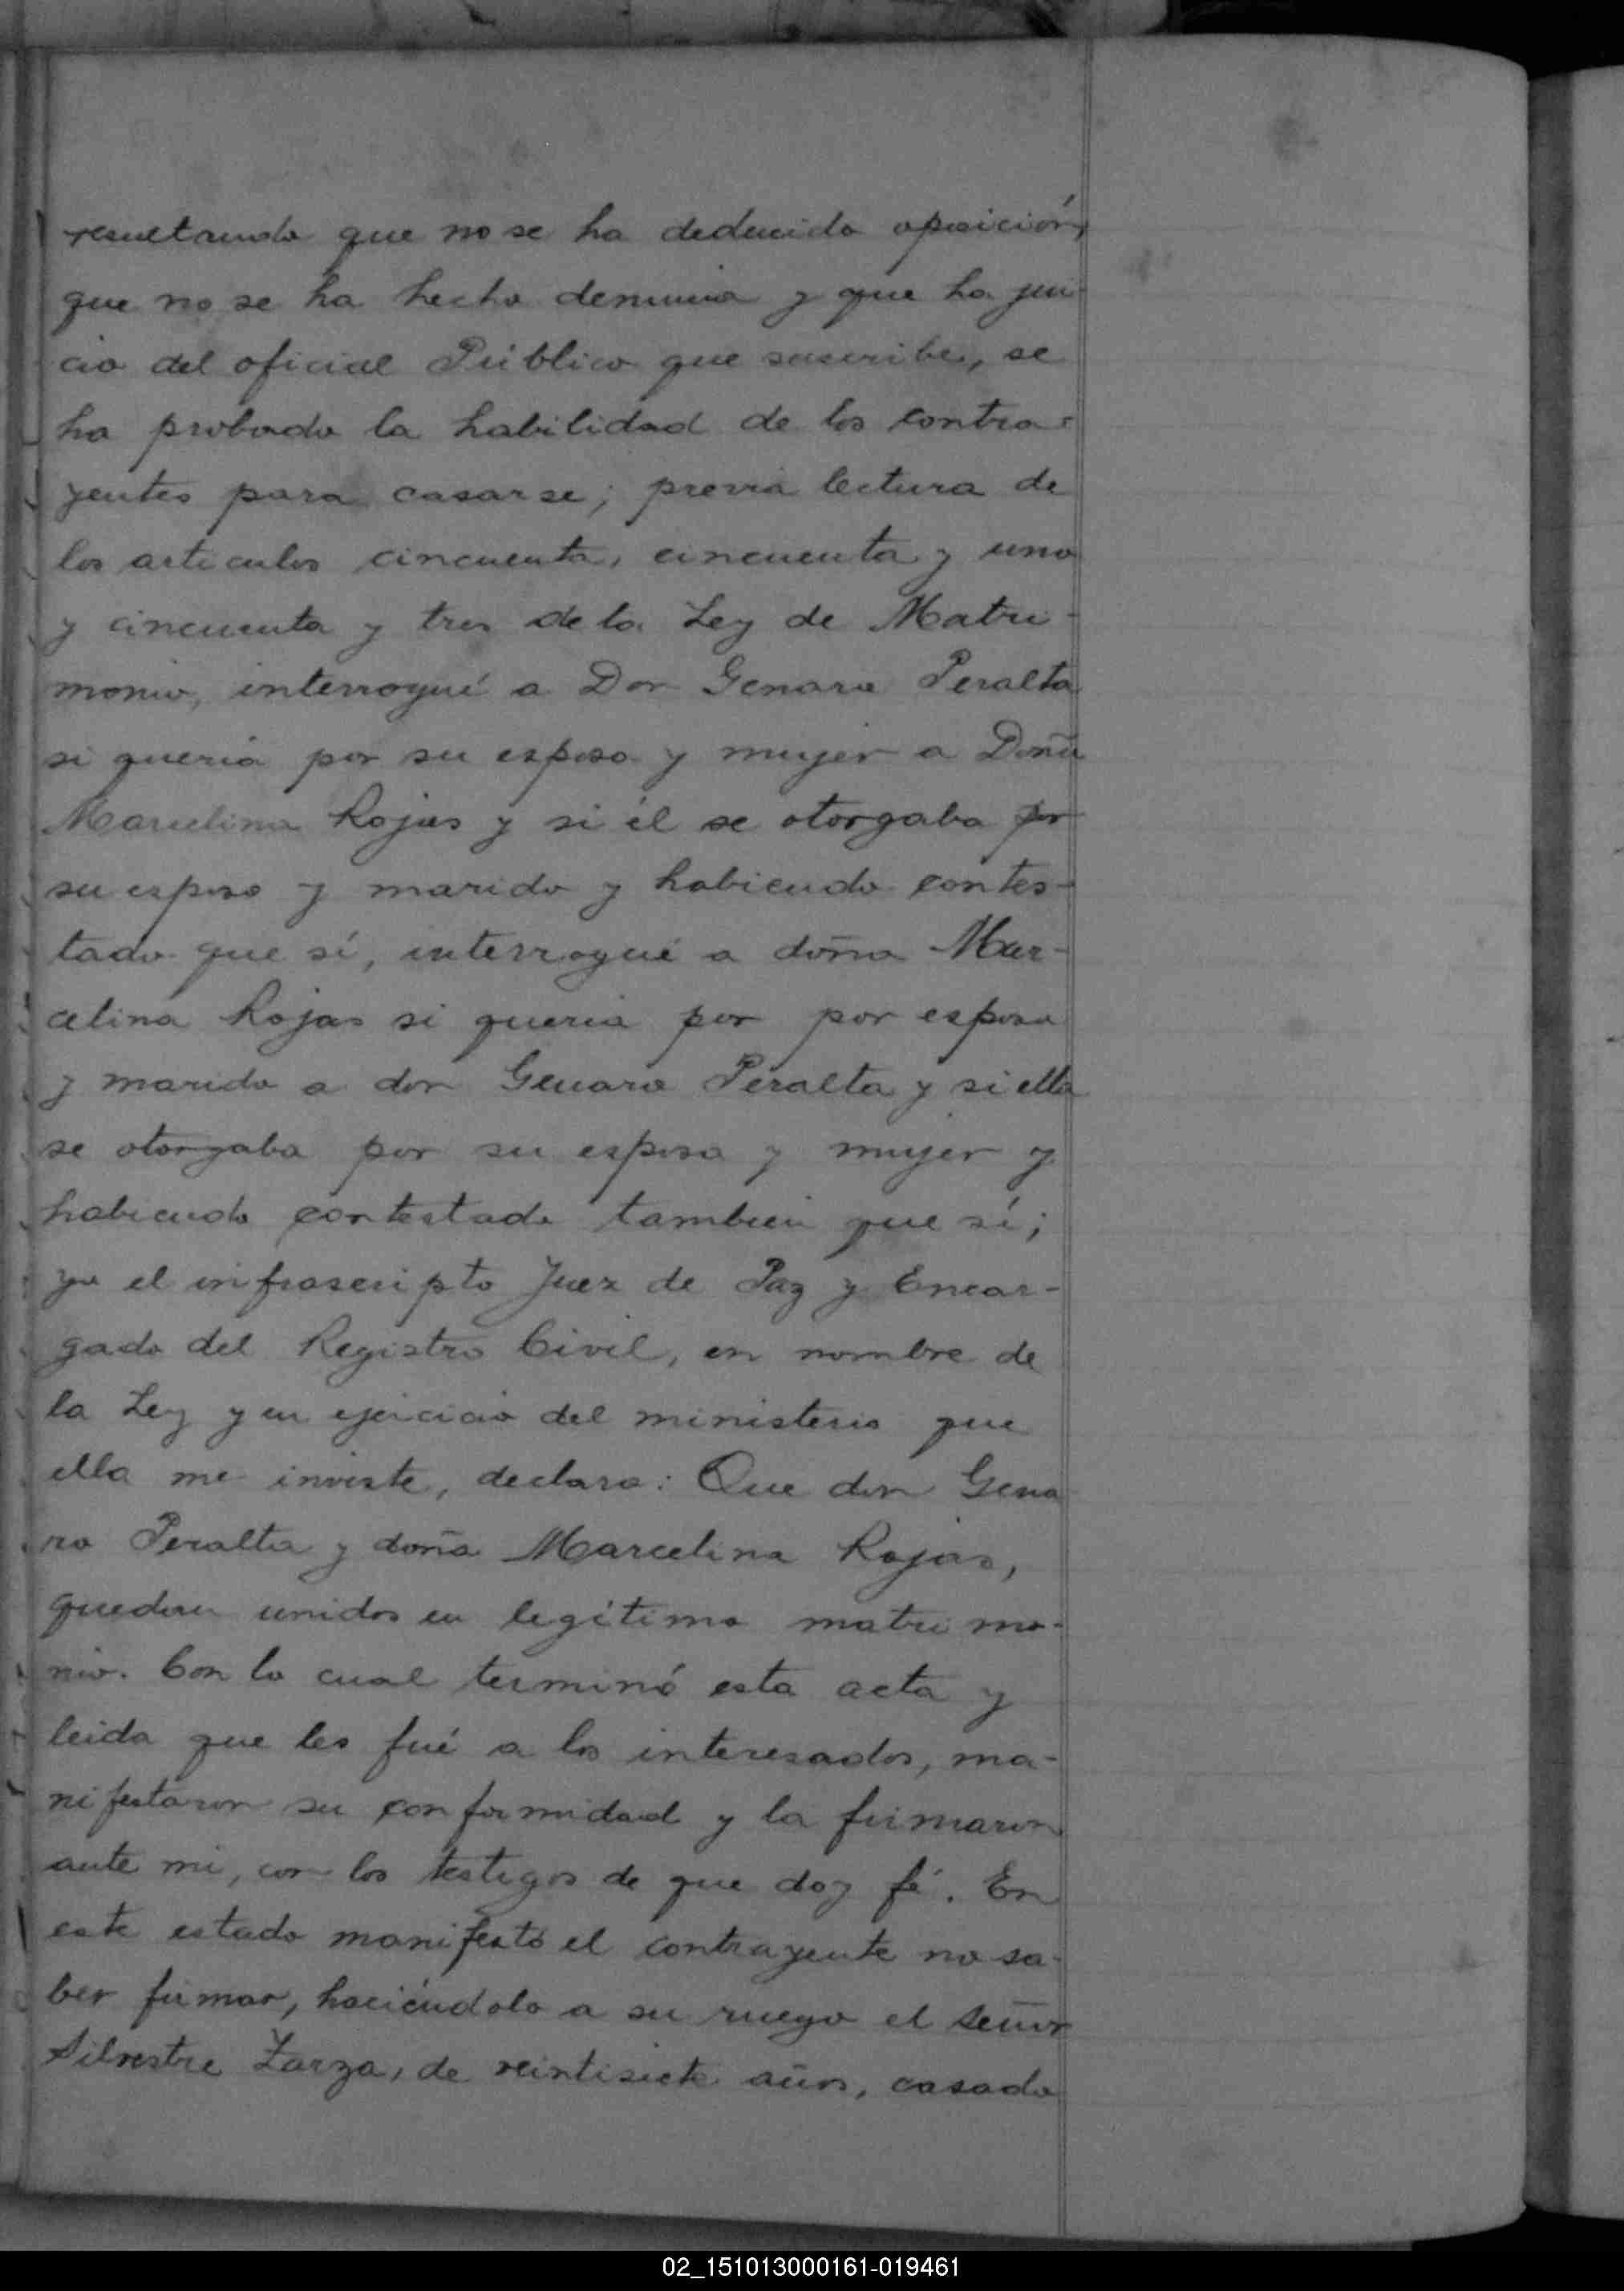 resultando que no se ha deducido oposición,
que no se ha hecho denuncia y que ha jui-
cio del oficial Público que suscribe, se
ha probado la habilidad de los contra-
yentes para casarse; previa lectura de
los articulos cincuenta, cincuenta y uno
y cincuenta y tres de la Ley de Matri-
monio, interrogué a Don Genaro Peralta
si queria por su esposa y mujer a Doña
Marcelina Rojas y si él se otorgaba por
su esposo y marido y habiendo contes-
tado que sí, interrogué a doña Mar-
celina Rojas si queria por por esposo
y marido a don Genaro Peralta y si ella
se otorgaba por su esposa y mujer y
habiendo contestado tambien que sí;
yo el infrascripto Juez de Paz y Encar-
gado del Registro Civil, en nombre de
la Ley y en ejercicio del ministerio que
ella me inviste, declaro: Que don Gena
ro Peralta y doña Marcelina Rojas,
quedan unidos en legítimo matrimo-
nio. Con lo cual terminó esta acta y
leida que les fué a los interesados, ma-
nifestaron su conformidad y la firmaron
ante mi, con los testigos de que doy fé. En
este estado manifestó el contrayente no sa-
ber firmar, haciéndolo a su ruego el señor
Silvestre Zarza, de veintisiete años, casado
02_151013000161-019461